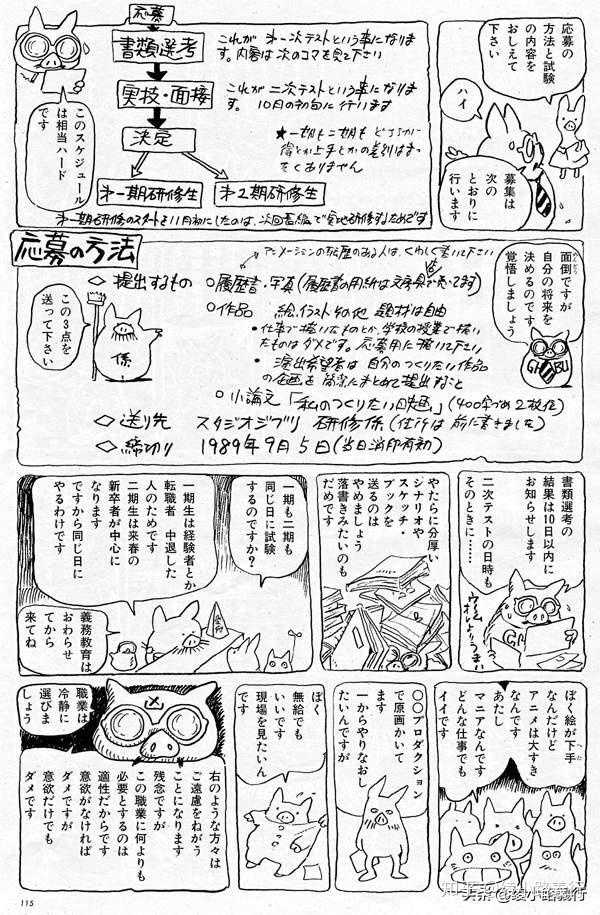 応募の
方法と試験
の内容を
おしえて
下さい
ハイ
募集は
次の
とおりに
行います
応募
書類選考
これが第一次テストという事になりま
す。内容は次のコマを見て下さい
実技・面接
これが二次テストという事になります
10月の初旬に行います
決定
★一期も二期もどちらかが
得とか上手とかの差別はまっ
たくありません
第一期研修生
第2期研修生
第一期研修のスタートを11月初にしたのは、次回長編で実地研修するためです
このスケジュール
は相当ハード
です
面倒ですが
自分の将来を
決めるのです
覚悟しましょう
GHIBU
応募の方法
アニメーションの経歴のある人は、くわしく書いて下さい
◇提出するもの
○履歴書・写真(履歴書の用紙は文房具店で売ってます)
○作品 絵、イラストその他 題材は自由
・仕事で描いたものとか、学校の授業で描い
たものはダメです。応募用に描いて下さい
・演出希望者は 自分のつくりたい作品
の企画を簡潔にまとめて提出すること
○小論文「私のつくりたい映画」(400字づめ2枚位)
◇送り先 スタジオジブリ 研修係(住所は前に書きました)
◇締切り 1989年9月5日(当日消印有効)
この3点を
送って下さい
係
書類選考の
結果は10日以内に
お知らせします
二次テストの日時も
そのときに……
やたらに分厚い
シナリオや
スケッチ・
ブックを
送るのは
やめましょう
落書きみたいのも
だめです
一期も二期も
同じ日に試験
するのですか?
一期生は経験者とか
転職者 中退した
人のためです
二期生は来春の
新卒者が中心に
なります
ですから同じ日に
やるわけです
義務教育は
おわらせ
てから
来てね
ぼく絵が下手
へた
なんだけど
アニメは大すき
なんです
あたし
マニアなんです
どんな仕事でも
イイです
○○プロダクション
で原画かいて
ます
一からやりなおし
たいんですが
ぼく
無給でも
いいです
現場を見たいん
です
職業は
冷静に
選びま
しょう
右のような方々は
ご遠慮をねがう
ことになります
残念ですが
この職業に何よりも
必要とするのは
適性だからです
意欲がなければ
ダメですが
意欲だけでも
ダメです
115
知乎 @绫小路義行
头条 @绫小路義行